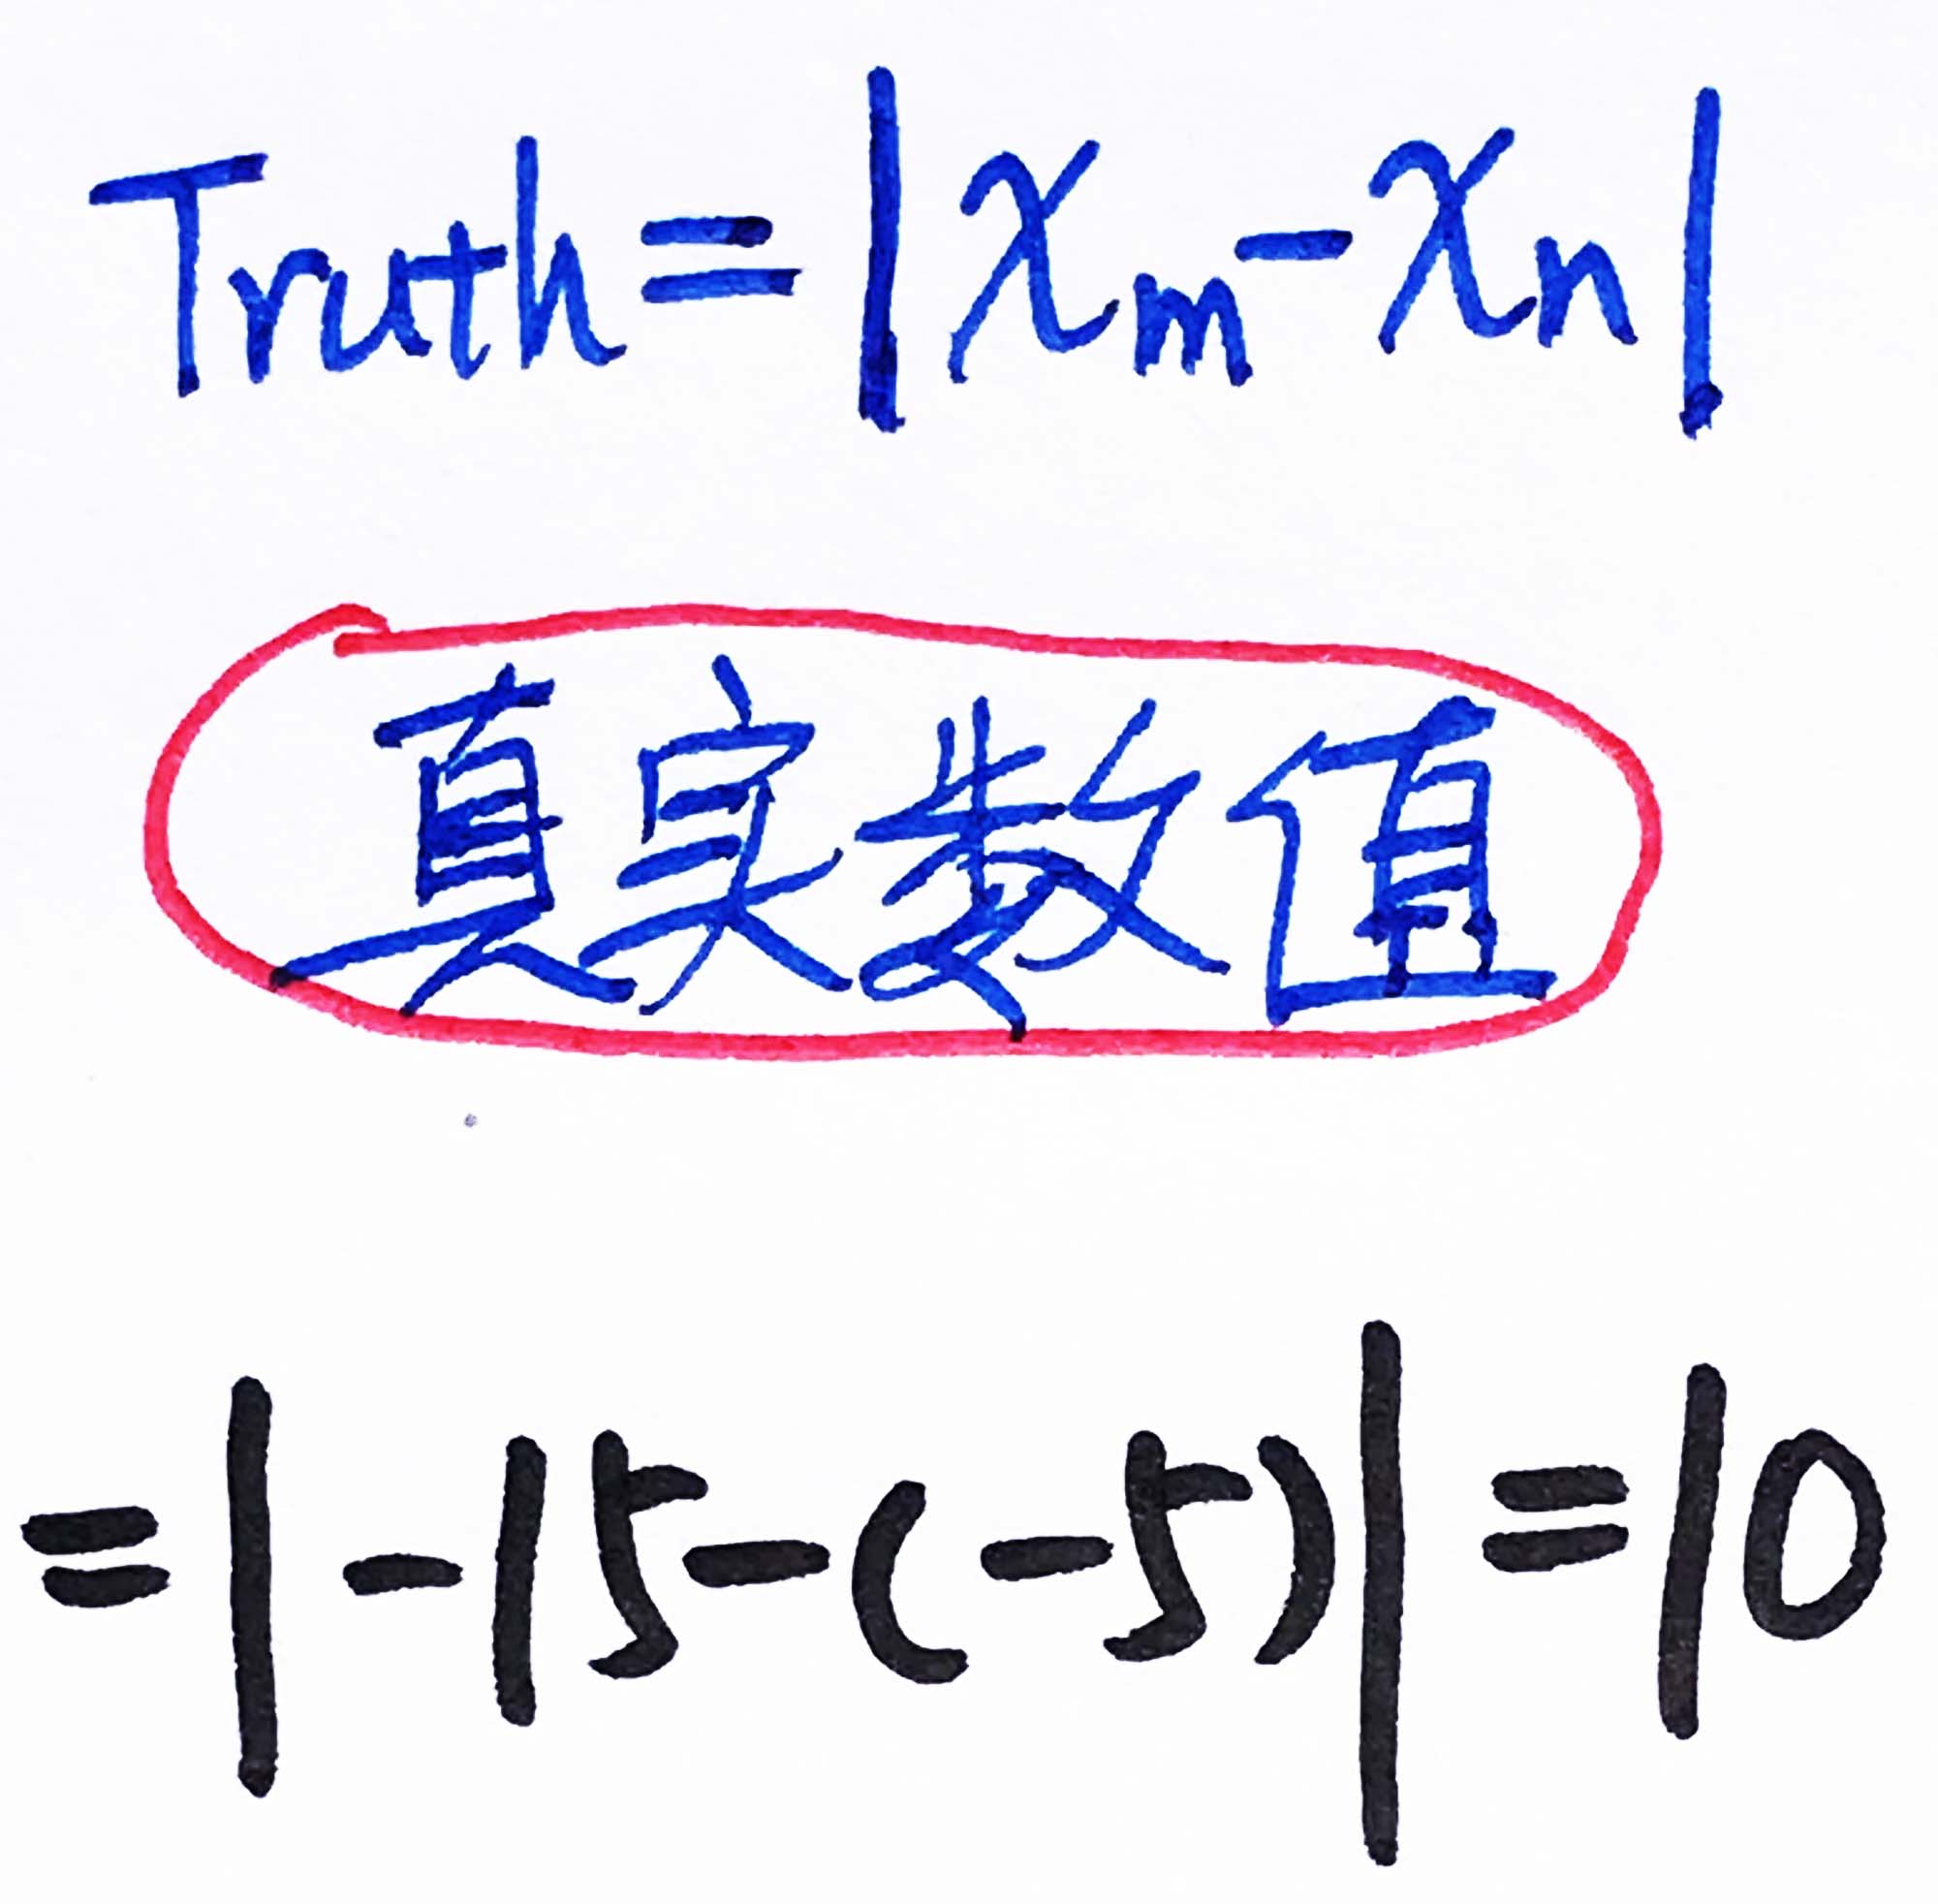 Truth=|xm-xn|
真实数值
=|-15-(-5)|=10